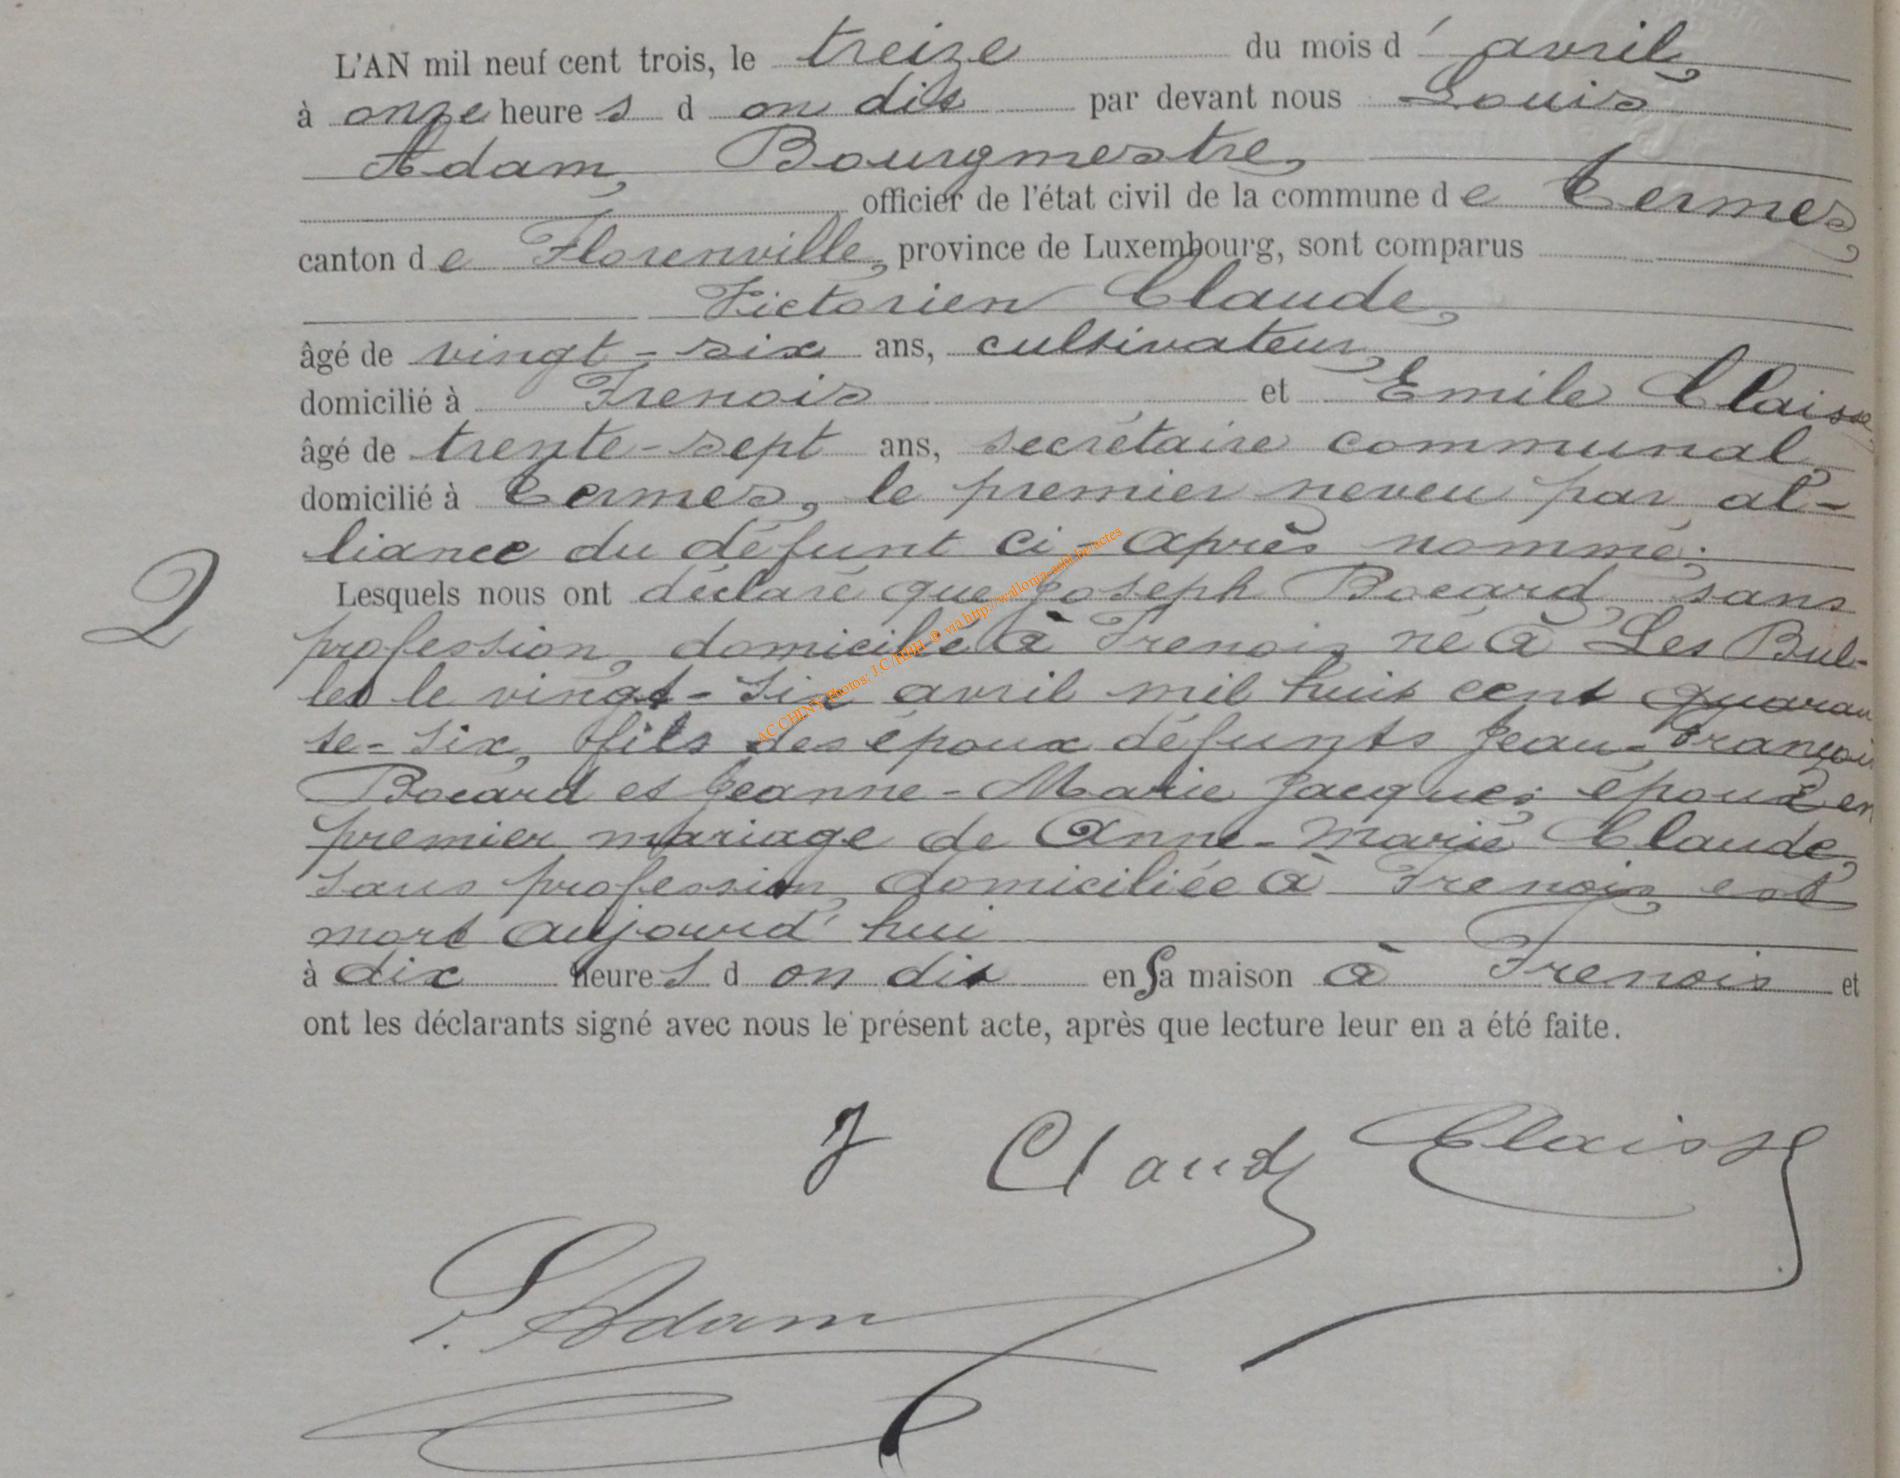 L'AN mil neuf cent trois, le treize du mois d'avril,
à onze heures d on dit par devant nous Louis
Adam, Bourgmestre,
officier de l'état civil de la commune de Termes,
canton de Florenville, province de Luxembourg, sont comparus
Victorien Claude,
âgé de vingt-six ans, cultivateur,
domicilié à Frenois et Emile Claisse
âgé de trente-sept ans, secrétaire communal,
domicilié à Termes, le premier neveu par al-
liance du défunt ci-après nommé;
2
Lesquels nous ont déclaré que Joseph Bocard, sans
profession, domicilié à Frenois, né à Les Bul-
les le vingt-six avril mil huit cent quaran
te-six, fils des époux défunts Jean-François
Bocard et Jeanne-Marie Jacques, époux en
premier mariage de Anne-Marie Claude,
sans profession, domiciliée à Frenois, est
mort aujourd'hui
à dix heures d on dit en sa maison à Frenois et
ont les déclarants signé avec nous le présent acte, après que lecture leur en a été faite.
AC CHINY Photos: J.C. HHH © via http://wallonia-asbl.be/actes
Claude Claisse
L. Adam